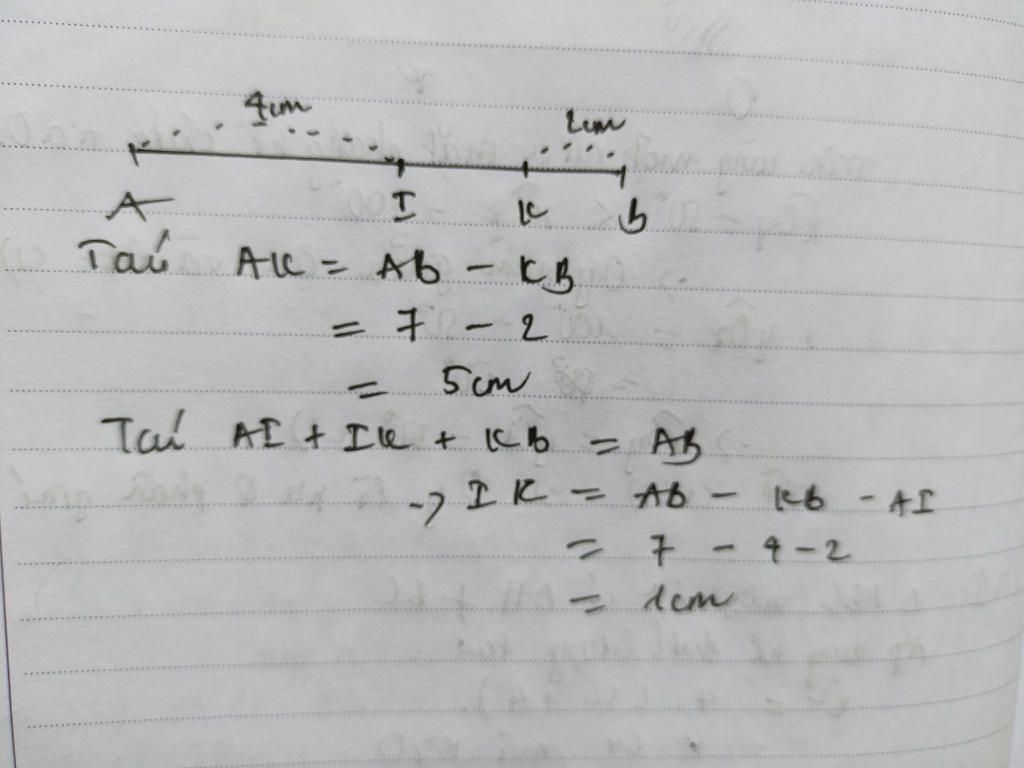 4cm 2cm
A I K B
Taú AK = AB - KB
= 7 - 2
= 5cm
Taú AI + IK + KB = AB
-> IK = AB - KB - AI
= 7 - 4 - 2
= 1cm